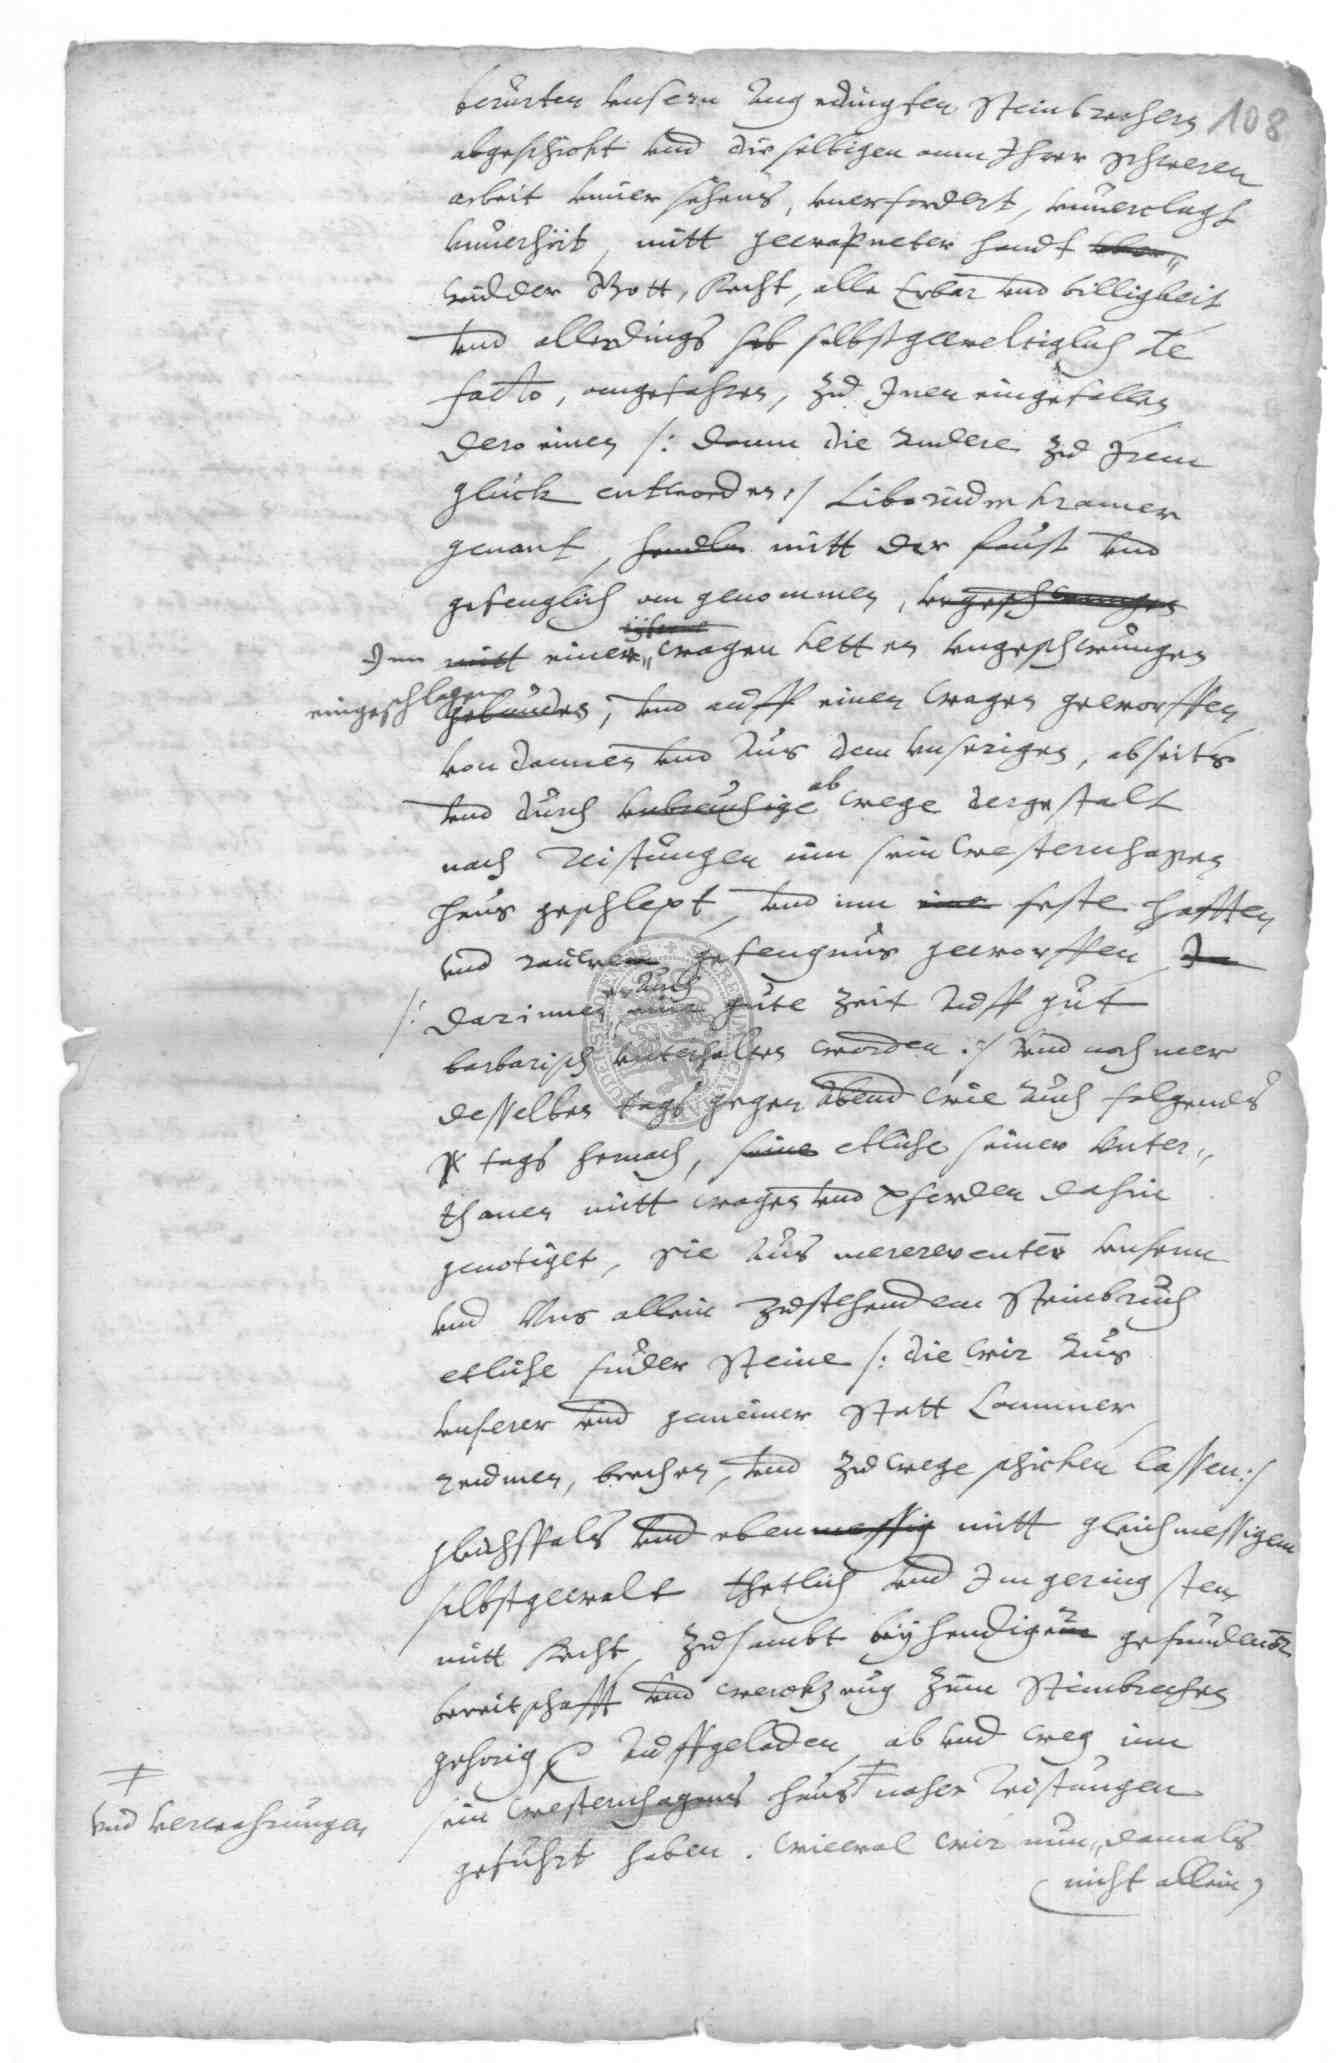 108
berurten unsern angedingten Steinbrechern
abgeschickt und dieselbigen ann Ihrer schweren
arbeit unuersehens, unerfordert, unuerclagt
unuerhört, mitt gewapneter handt
widder Gott, Recht, alle Erbar und billigkeit
und allerdings selbstgeweltiglich de
facto, angefahren, zu Inen eingefallen
dero einen /: dann die andere zu Irem
glück entworden :/ Kramer
genant, handtn mitt der faust und
gefenglich angenommen, umgeschwungen
Inn mitt einer eyserne wagen ketten umgeschwungen
eingeschlagen gebunden, und auff einen wagen geworffen
von dannen und aus dem unserigen, abseits
und durch unbreuchige ab wege dergestalt
nach Teistungen inn sein Westernhagen
haus geschlept, und inn eine feste hafften
und gefengnus geworffen
/: darinnen er auch eine gute zeit auff gut
barbarisch unterhalten worden :/ und noch mer
desselben tags gegen abend wie auch folgends
tags hernach, seine etliche seiner unter„
thanen mitt wagen und pferden dahin
genotiget, die aus mererwenter unserm
und Uns allein zustehendem Steinbruch
etliche fuder Steine /: die wir aus
unserer und gemeiner Statt Cammer
reumen, brechen, und zuwege schicken lassen :/
gleichffals und ebenmessig mitt gleichmessigem
selbstgewalt thetlich und Im geringsten
mitt Recht, zusambt beyhendigen gefundener
bereitschafft und werckzeug zum Steinbrechen
gehorig auffgeladen, ab und weg inn
sein Westernhagens haus ǂ naher Teistungen
ǂ und verwahrungen
gefuhrt haben. Wiewol wir nun, damals
nicht allein